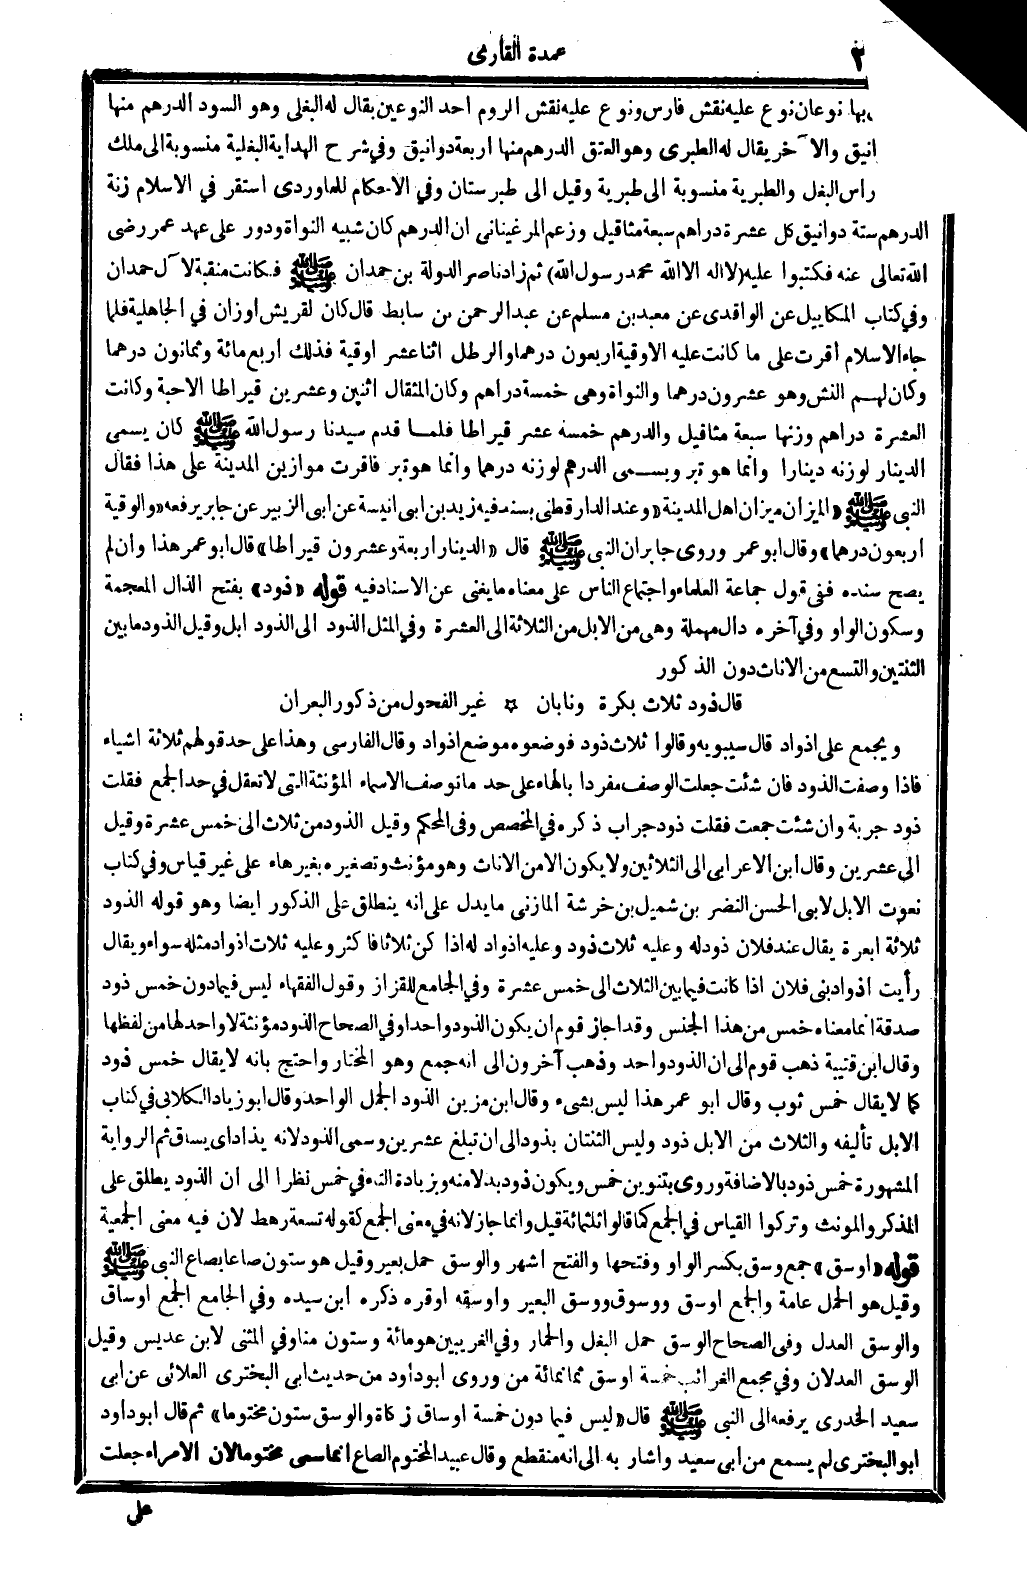 عمدة القارئ
بها نوعان نوع عليه نقش فارس ونوع عليه نقش الروم احد النوعين يقال له البغلى وهو السود الدرهم منها
انيق والآخر يقال له الطبرى وهو العتق الدرهم منها اربعة دوانيق وفي شرح الهداية البغلية منسوبة الى ملك
رأس البغل والطبرية منسوبة الى طبرية وقيل الى طبرستان وفي الاحكام للماوردى استقر في الاسلام زنة
الدرهم ستة دوانيق كل عشرة دراهم سبعة مثاقيل وزعم المرغينانى ان الدرهم كان شبيه النواة ودور على عهد عمر رضى
الله تعالى عنه فكتبوا عليه (لا اله الا الله محمد رسول الله) ثم زاد ناصر الدولة بن حمدان ﷺ فكانت منقبة لآل حمدان
وفي كتاب المكاييل عن الواقدى عن معبد بن مسلم عن عبد الرحمن بن سابط قال كان لقريش اوزان في الجاهلية فلما
جاء الاسلام اقرت على ما كانت عليه الاوقية اربعون درهما والرطل اثنا عشر اوقية فذلك اربع مائة وثمانون درهما
وكان لهم النش وهو عشرون درهما والنواة وهى خمسة دراهم وكان المثقال اثنين وعشرين قيراطا الا حبة وكانت
العشرة دراهم وزنها سبعة مثاقيل والدرهم خمسة عشر قيراطا فلما قدم سيدنا رسول الله ﷺ كان يسمى
الدينار لوزنه دينارا وانما هو تبر ويسمى الدرهم لوزنه درهما وانما هو تبر فاقرت موازين المدينة على هذا فقال
النبى ﷺ «الميزان ميزان اهل المدينة» وعند الدارقطنى بسند فيه زيد بن ابى انيسة عن ابى الزبير عن جابر يرفعه «والوقية
اربعون درهما» وقال ابو عمر وروى جابر ان النبى ﷺ قال «الدينار اربعة وعشرون قيراطا» قال ابو عمر هذا وان لم
يصح سنده ففى قول جماعة العلماء واجتماع الناس على معناه ما يغنى عن الاسناد فيه قوله «ذود» بفتح الذال المعجمة
وسكون الواو وفي آخره دال مهملة وهى من الابل من الثلاثة الى العشرة وفي المثل الذود الى الذود ابل وقيل الذود ما بين
الثنتين والتسع من الاناث دون الذكور
قال ذود ثلاث بكرة ونابان ☆ غير الفحول من ذكور البعران
ويجمع على اذواد قال سيبويه وقالوا ثلاث ذود فوضعوه موضع اذواد وقال الفارسى وهذا على حد قولهم ثلاثة اشياء
فاذا وصفت الذود فان شئت جعلت الوصف مفردا بالهاء على حد ما توصف الاسماء المؤنثة التى لا تعقل في حد الجمع فقلت
ذود جربة وان شئت جمعت فقلت ذود جراب ذكره في المخصص وفى المحكم وقيل الذود من ثلاث الى خمس عشرة وقيل
الى عشرين وقال ابن الاعرابى الى الثلاثين ولا يكون الا من الاناث وهو مؤنث وتصغيره بغير هاء على غير قياس وفي كتاب
نعوت الابل لابى الحسن النضر بن شميل بن خرشة المازنى ما يدل على انه ينطلق على الذكور ايضا وهو قوله الذود
ثلاثة ابعرة يقال عند فلان ذود له وعليه ثلاث ذود وعليه اذواد له اذا كن ثلاثا فاكثر وعليه ثلاث اذواد مثله سواء ويقال
رأيت اذواد بنى فلان اذا كانت فيما بين الثلاث الى خمس عشرة وفي الجامع للقزاز وقول الفقهاء ليس فيما دون خمس ذود
صدقة انما معناه خمس من هذا الجنس وقد اجاز قوم ان يكون الذود واحدا وفي الصحاح الذود مؤنثة لا واحد لها من لفظها
وقال ابن قتيبة ذهب قوم الى ان الذود واحد وذهب آخرون الى انه جمع وهو المختار واحتج بانه لا يقال خمس ذود
كما لا يقال خمس ثوب وقال ابو عمر هذا ليس بشىء وقال ابن مزين الذود الجمل الواحد وقال ابو زياد الكلابى في كتاب
الابل تأليفه والثلاث من الابل ذود وليس الثنتان بذود الى ان تبلغ عشرين وسمى الذود لانه يذاد اى يساق ثم الرواية
المشهورة خمس ذود بالاضافة وروى بتنوين خمس ويكون ذود بدلا منه وبزيادة التاء في خمس نظرا الى ان الذود يطلق على
المذكر والمونث وتركوا القياس في الجمع كما قالوا ثلثمائة قيل وانما جاز لانه في معنى الجمع كقوله تسعة رهط لان فيه معنى الجمعية
قوله «اوسق» جمع وسق بكسر الواو وفتحها والفتح اشهر والوسق حمل بعير وقيل هو ستون صاعا بصاع النبى ﷺ
وقيل هو الحمل عامة والجمع اوسق ووسوق ووسق البعير واوسقه اوقره ذكره ابن سيده وفي الجامع الجمع اوساق
والوسق العدل وفى الصحاح الوسق حمل البغل والحمار وفي الغريبين هو مائة وستون منا وفي المثنى لابن عديس وقيل
الوسق العدلان وفي مجمع الغرائب خمسة اوسق ثمانمائة من وروى ابو داود من حديث ابى البخترى العلائى عن ابى
سعيد الخدرى يرفعه الى النبى ﷺ قال «ليس فيما دون خمسة اوساق زكاة والوسق ستون مختوما» ثم قال ابو داود
ابو البخترى لم يسمع من ابى سعيد واشار به الى انه منقطع وقال عبيد المختوم الصاع انما سمى مختوما لان الامراء جعلت
على